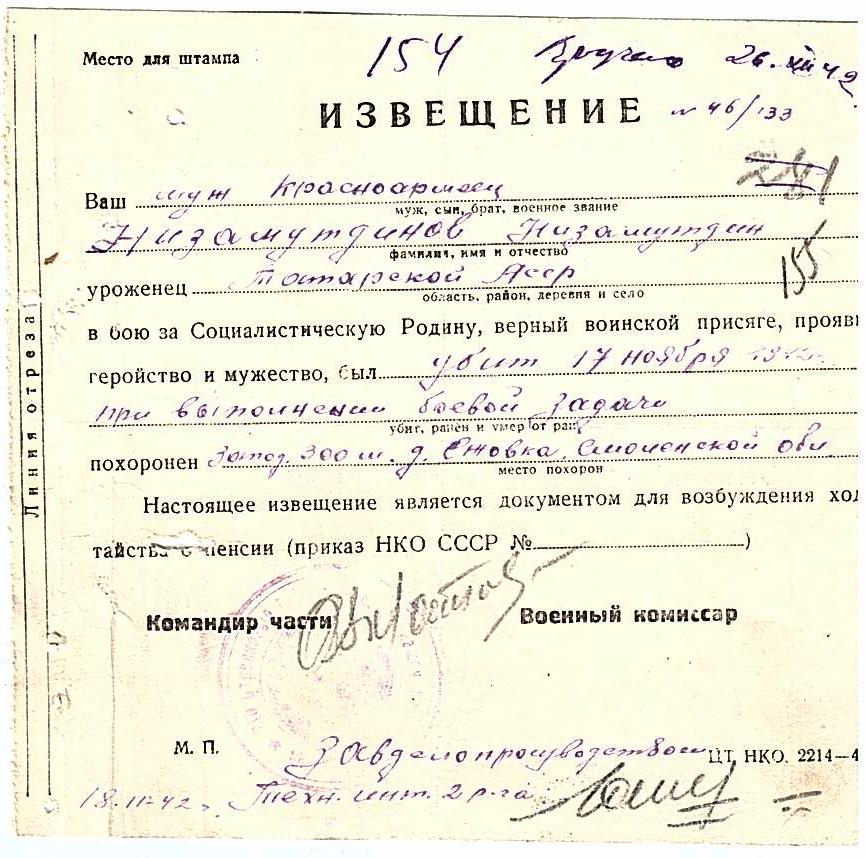 Место для штампа
154
26.XII 42
ИЗВЕЩЕНИЕ
№ 46/133
Ваш муж Красноармеец
муж, сын, брат, военное звание
Низамутдинов Низамутдин
фамилия, имя и отчество
155
уроженец Татарской Асср
область, район, деревня и село
в бою за Социалистическую Родину, верный воинской присяге, прояви
геройство и мужество, был убит 17 ноября 1942г.
при выполнении боевой задачи
убит, ранен и умер от ран
похоронен Запад. 300 м. д. Ежовка, Смоленской обл
место похорон
Настоящее извещение является документом для возбуждения ход
тайства о пенсии (приказ НКО СССР № )
Командир части
Военный комиссар
М. П.
Завделопроизводством
ЦТ. НКО. 2214—4
18.11-42г. Техн. инт. 2 р-га
Линия отреза